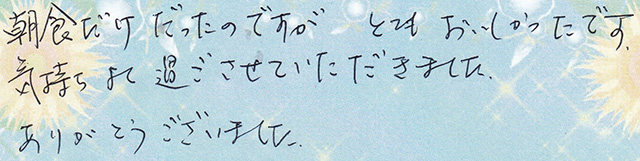 朝食だけだったのですが とても おいしかったです.
気持ちよく過ごさせていただきました.
ありがとうございました.